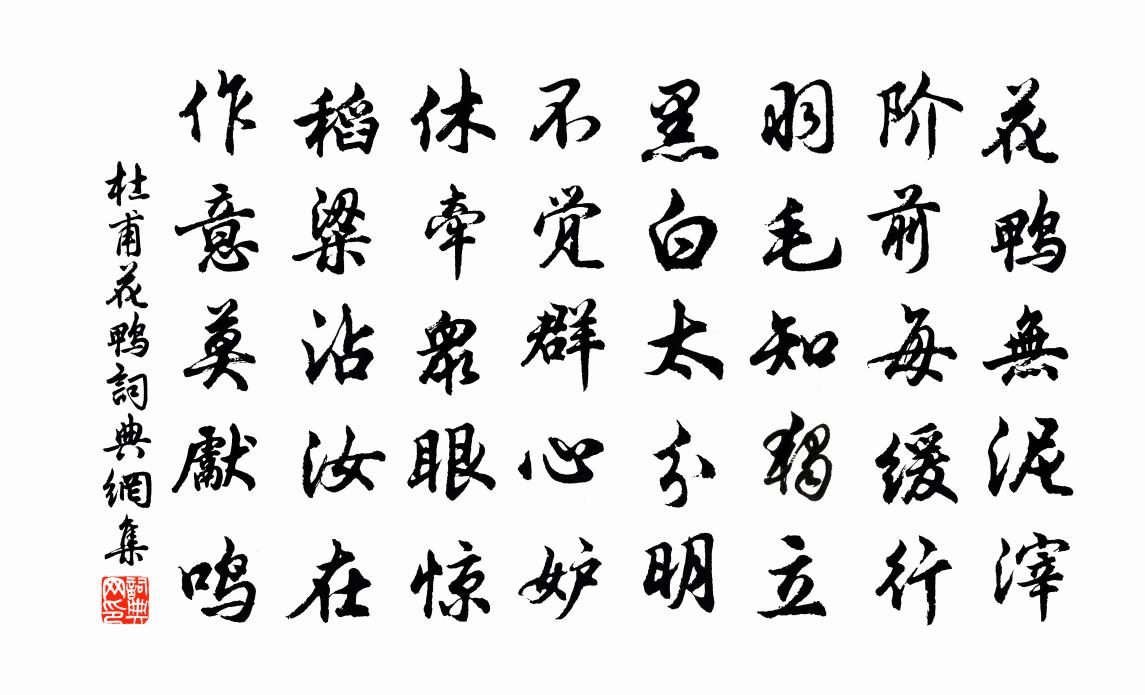 花鴨無泥滓
阶前每缓行
羽毛知獨立
黑白太分明
不觉群心妒
休牽眾眼惊
稻粱沾汝在
作意莫獻鸣
杜甫花鴨詞典網集
詞典网印